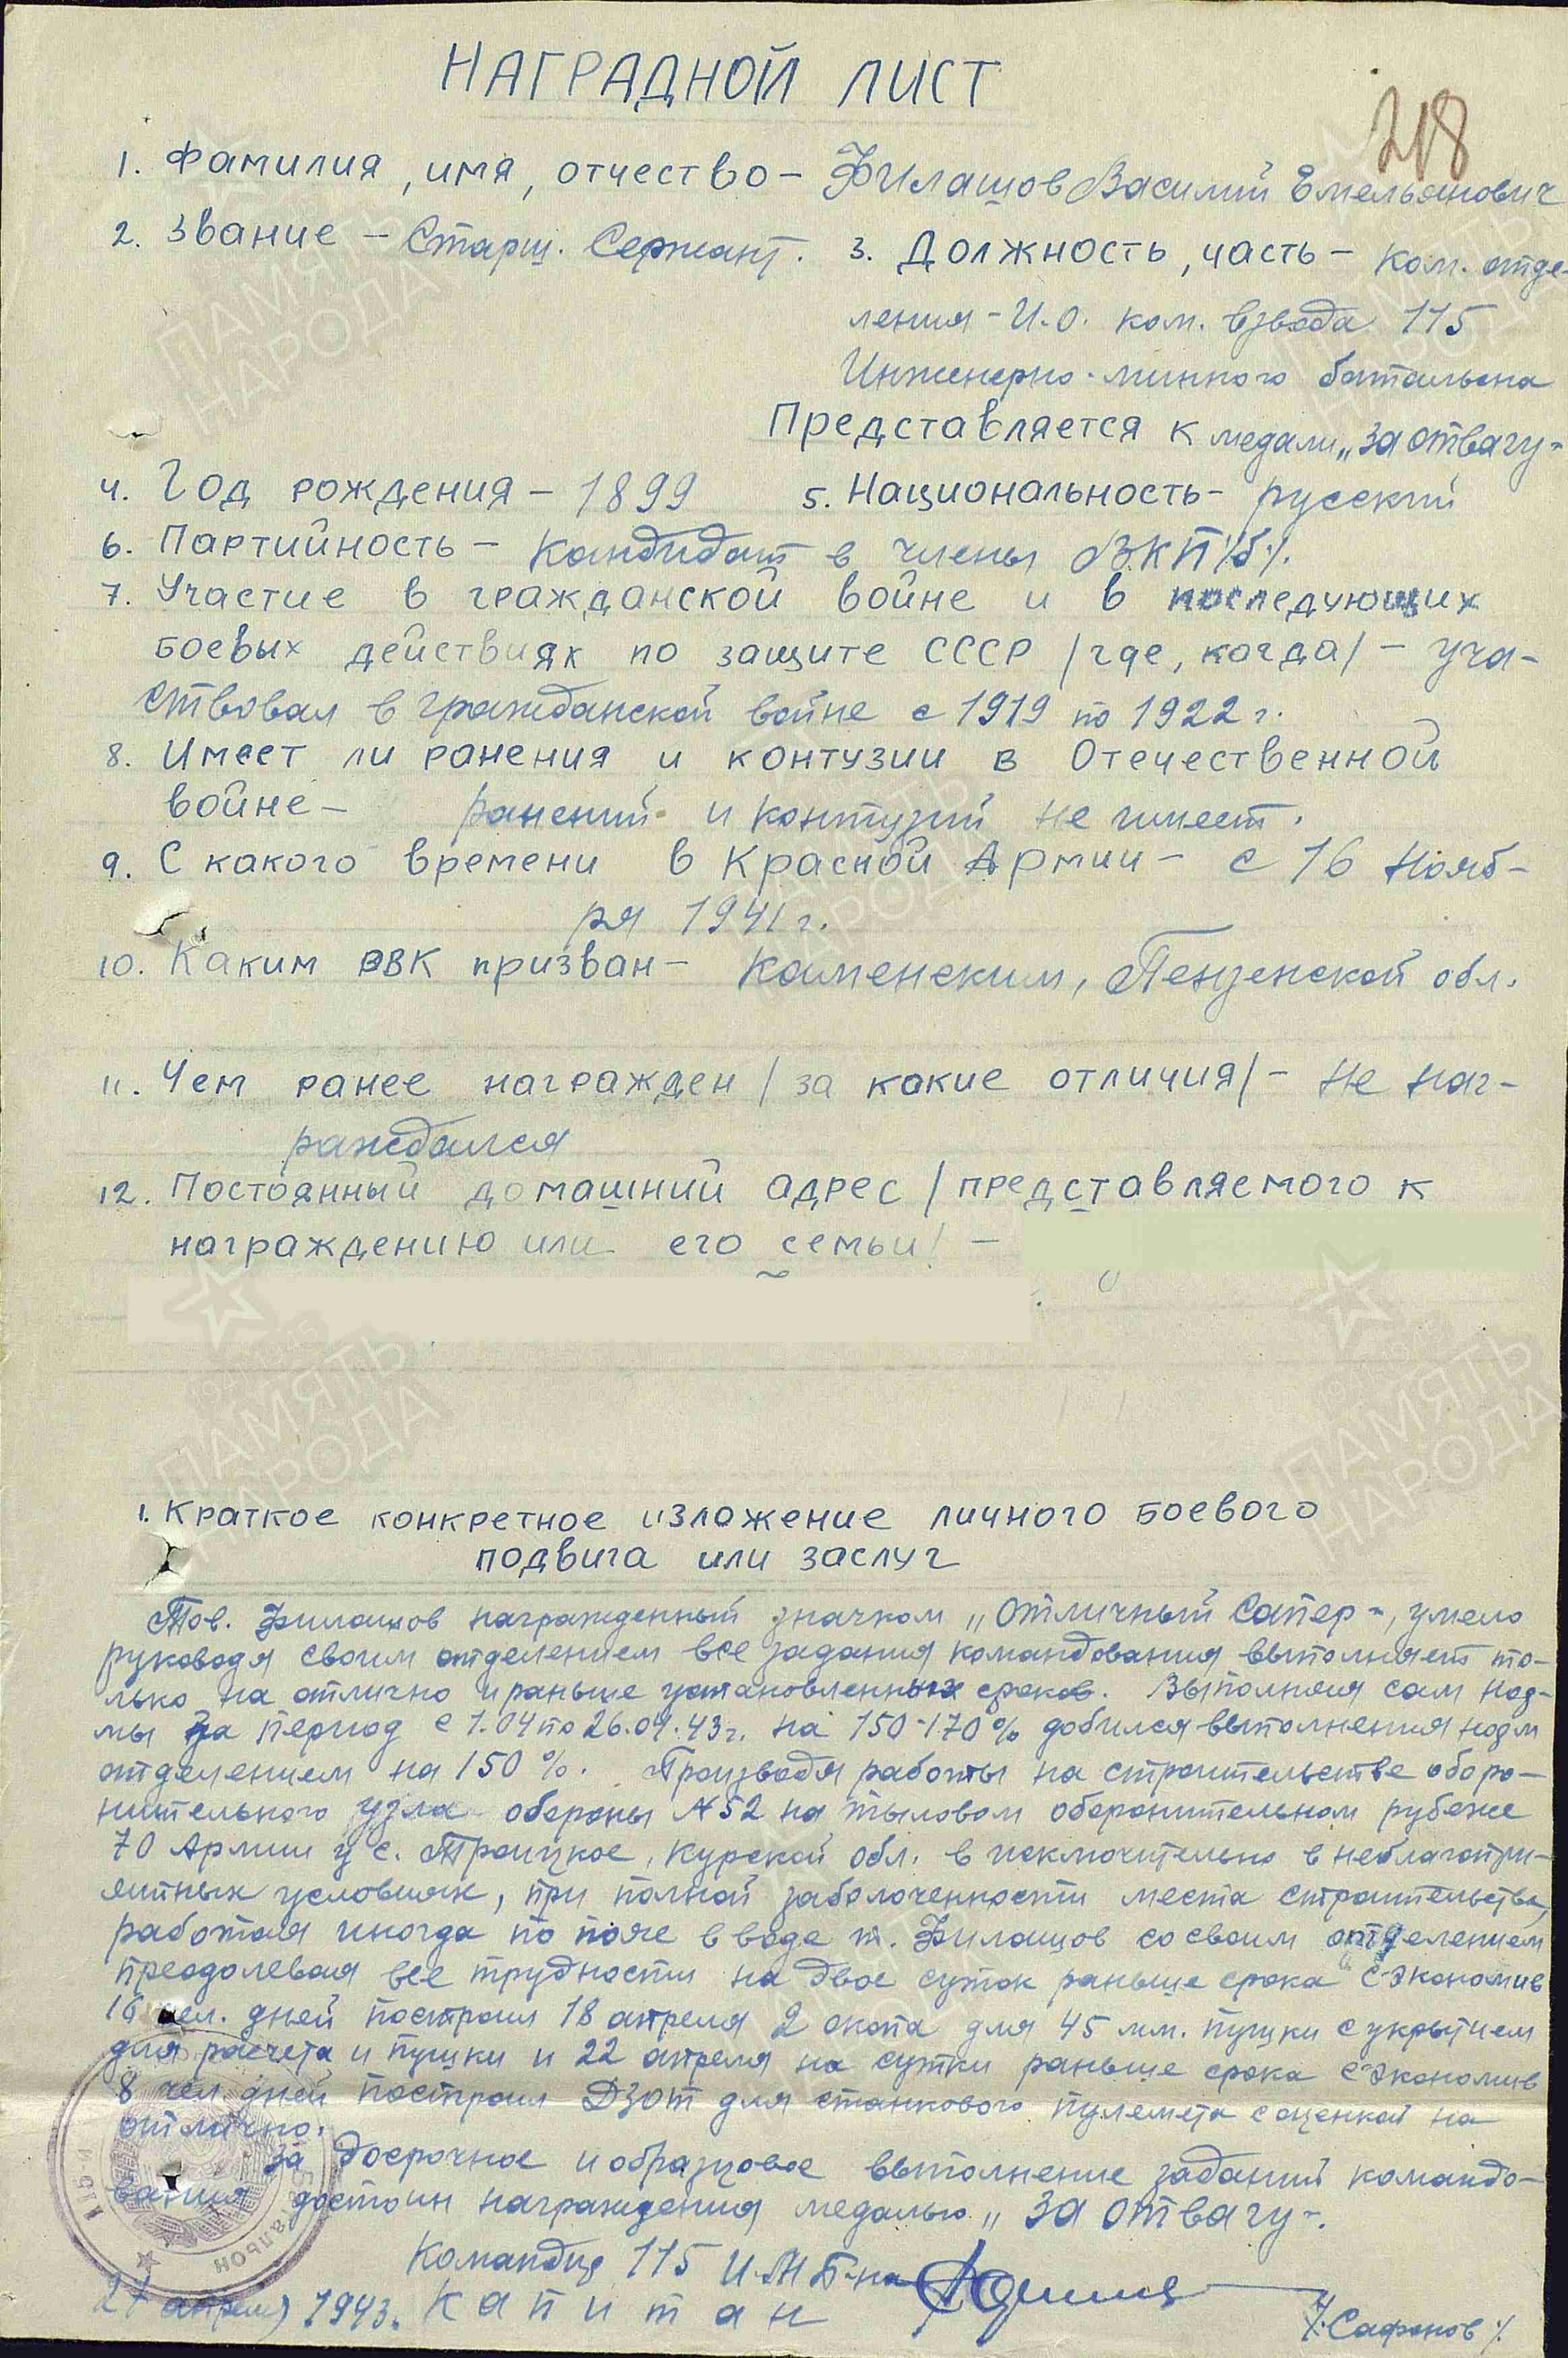 218
НАГРАДНОЙ ЛИСТ
1. Фамилия, имя, отчество – Филашов Василий Емельянович
2. Звание – Старш. Сержант. 3. Должность, часть – Ком. отде-
ления – И.О. ком. взвода 115
Инженерно-минного батальона
Представляется к медали „За отвагу"
4. Год рождения – 1899 5. Национальность – русский
6. Партийность – Кандидат в члены ВКП/б/.
7. Участие в гражданской войне и в последующих
боевых действиях по защите СССР /где, когда/ – уча-
ствовал в гражданской войне с 1919 по 1922 г.
8. Имеет ли ранения и контузии в Отечественной
войне – ранений и контузий не имеет.
9. С какого времени в Красной Армии – с 16 Нояб-
ря 1941 г.
10. Каким РВК призван – Каменским, Пензенской обл.
11. Чем ранее награжден /за какие отличия/ – Не наг-
раждался
12. Постоянный домашний адрес /представляемого к
награждению или его семьи/ –
1. Краткое конкретное изложение личного боевого
подвига или заслуг
Тов. Филашов награжденный значком „Отличный Сапер", умело
руководя своим отделением все задания командования выполняет то-
лько на отлично и раньше установленных сроков. Выполняя сам нор-
мы за период с 1.04 по 26.04.43 г. на 150-170% добился выполнения норм
отделением на 150%. Производя работы на строительстве оборо-
нительного узла обороны №52 на тыловом оборонительном рубеже
70 Армии у с. Троицкое, Курской обл. в исключительно в неблагопри-
ятных условиях, при полной заболоченности места строительства,
работая иногда по пояс в воде т. Филашов со своим отделением
преодолевая все трудности на двое суток раньше срока сэкономив
16 чел. дней построил 18 апреля 2 окопа для 45 мм. пушки с укрытием
для расчета и пушки и 22 апреля на сутки раньше срока сэкономив
8 чел. дней построил ДЗОТ для станкового пулемета с оценкой на
отлично.
За досрочное и образцовое выполнение заданий командо-
вания достоин награждения медалью „За отвагу".
Командир 115 И.М.Б-на
апреля 1943. Капитан /Сафонов/
ПАМЯТЬ
НАРОДА